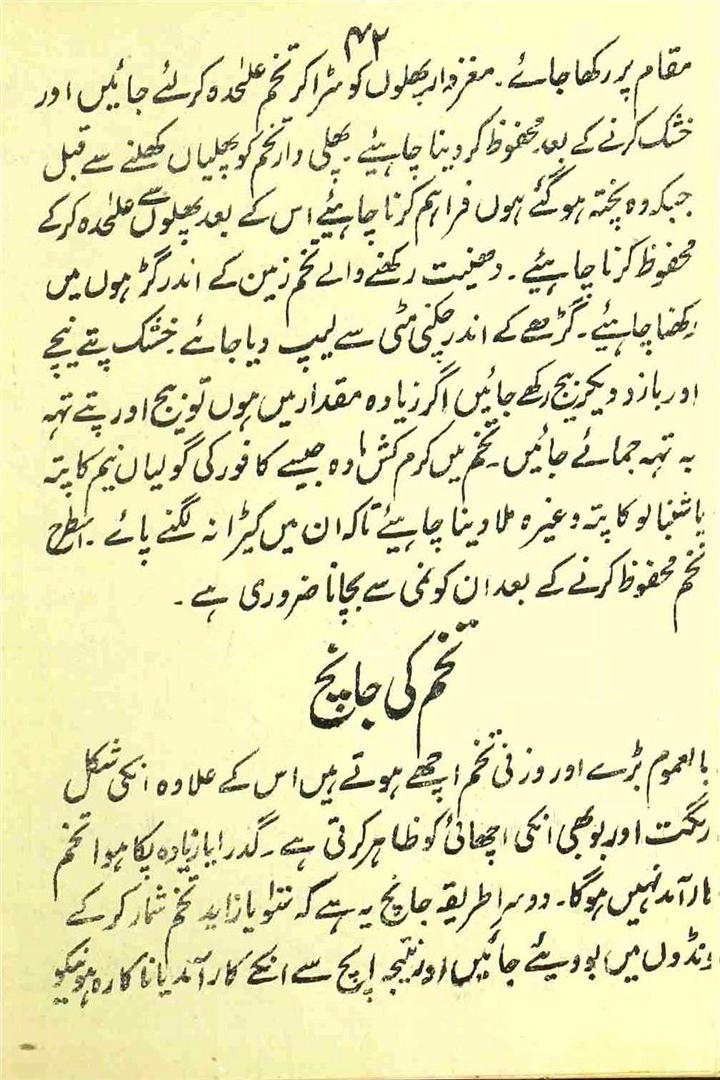 ۴۲
مقام پر رکھا جائے۔ مغزدار پھلوں کو سڑا کر تخم علٰحدہ کر لئے جائیں اور
خشک کرنے کے بعد محفوظ کر دینا چاہیئے۔ پھلی دار تخم کو پھلیاں کھلنے سے قبل
جبکہ وہ پختہ ہو گئے ہوں فراہم کرنا چاہیئے اس کے بعد پھلوں سے علٰحدہ کر کے
محفوظ کرنا چاہیئے۔ دھنیت رکھنے والے تخم زمین کے اندر گڑہوں میں
رکھنا چاہیئے۔ گڑھے کے اندر چکنی مٹی سے لیپ دیا جائے خشک پتے نیچے
اور بازو دیکر بیج رکھے جائیں اگر زیادہ مقدار میں ہوں تو بیج اور پتے تہہ
بہ تہہ جمائے جائیں۔ تخم میں کرم کش مادہ جیسے کافور کی گولیاں نیم کا پتہ
یا شنبالو کا پتہ وغیرہ ملا دینا چاہیئے تاکہ ان میں کیڑا نہ لگنے پائے۔ اسطرح
تخم محفوظ کرنے کے بعد ان کو نمی سے بچانا ضروری ہے۔
تخم کی جانچ
بالعموم بڑے اور وزنی تخم اچھے ہوتے ہیں اس کے علاوہ انکی شکل
رنگت اور بو بھی انکی اچھائی کو ظاہر کرتی ہے۔ گدرا یا زیادہ پکا ہوا تخم
کارآمد نہیں ہوگا۔ دوسرا طریقہ جانچ یہ ہے کہ سو یا زاید تخم شمار کر کے
کونڈوں میں بو دیئے جائیں اور نتیجہ اپچ سے انکے کارآمد یا ناکارہ ہونیکو